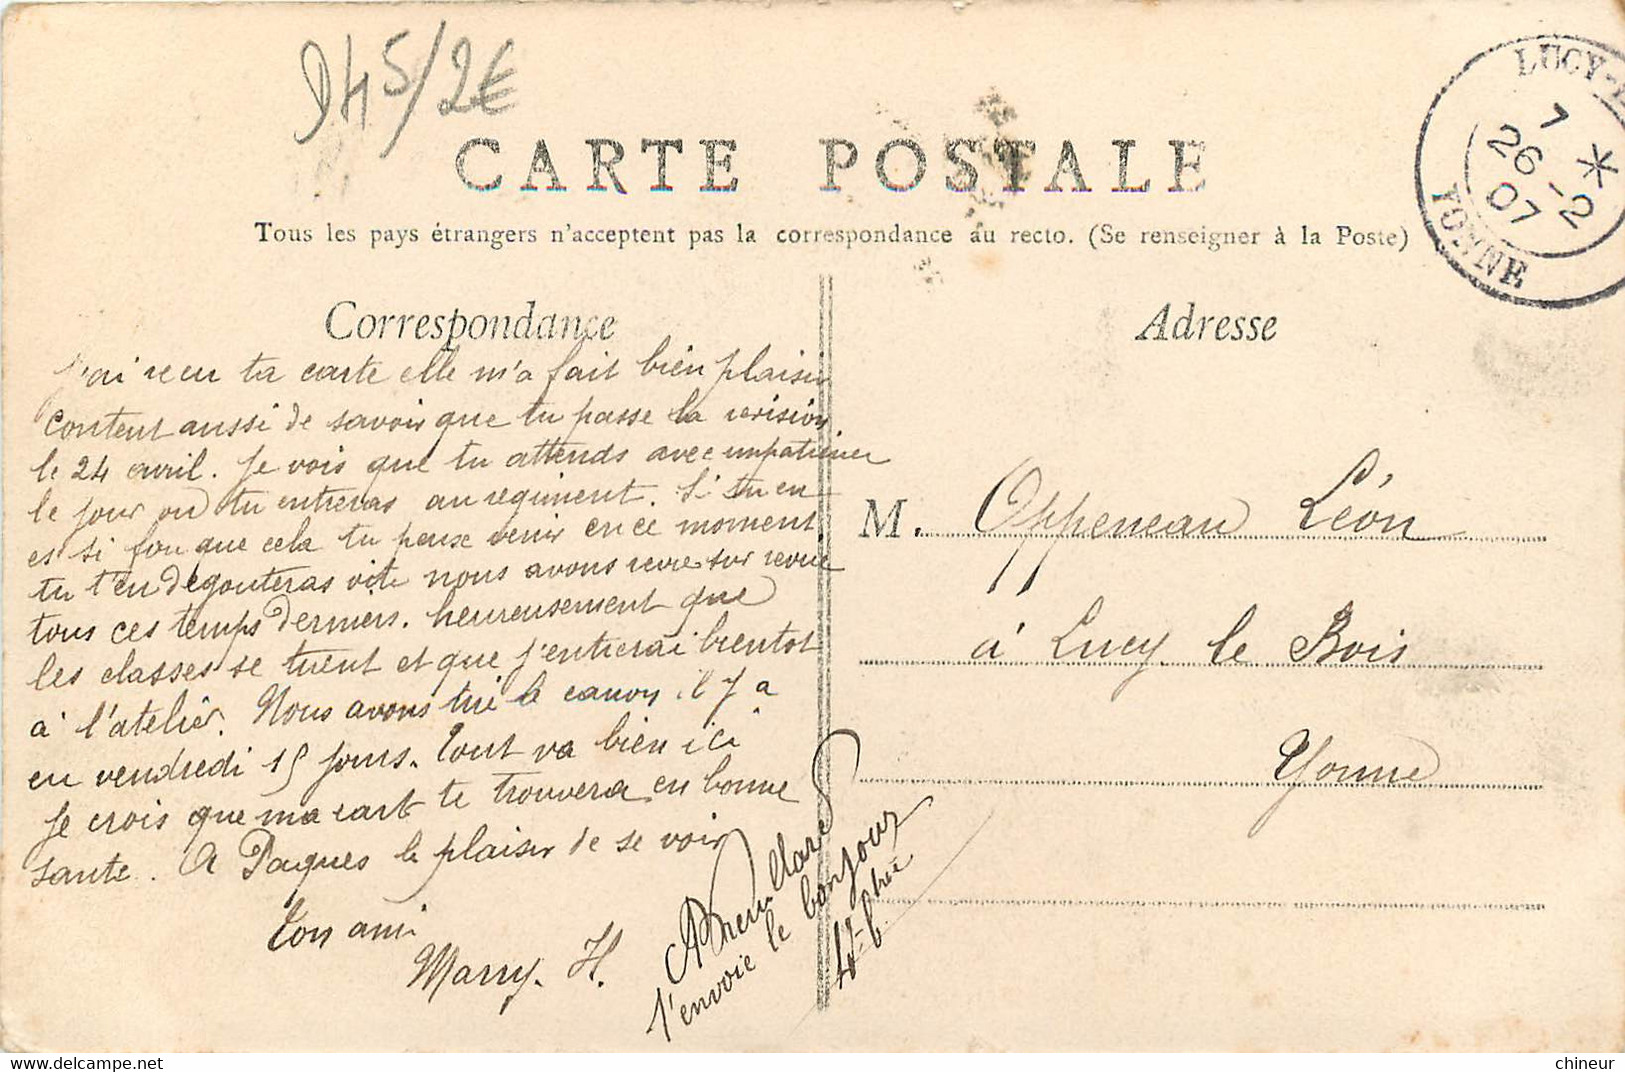 945/2€
CARTE POSTALE
Tous les pays étrangers n'acceptent pas la correspondance au recto. (Se renseigner à la Poste)
LUCY-
7 *
26 -2
07
YONNE
Correspondance
Adresse
J'ai recu ta carte elle m'a fait bien plaisir
content aussi de savoir que tu passe la revision
le 24 avril. Je vois que tu attends avec impatience
le jour ou tu entreras au regiment. Si tu en
es si fou que cela tu peux venir en ce moment
tu t'en degouteras vite nous avons revue sur revue
tous ces temps derniers. heureusement que
les classes se tirent et que j'entrerai bientot
à l'atelier. Nous avons tiré le canon il y a
eu vendredi 15 jours. Tout va bien ici
Je crois que ma cart te trouvera en bonne
santé. A Paques le plaisir de se voir
Ton ami
Marry. H.
t'envoie le bonjour
M. Oppeneau Léon
à Lucy le Bois
Yonne
chineur